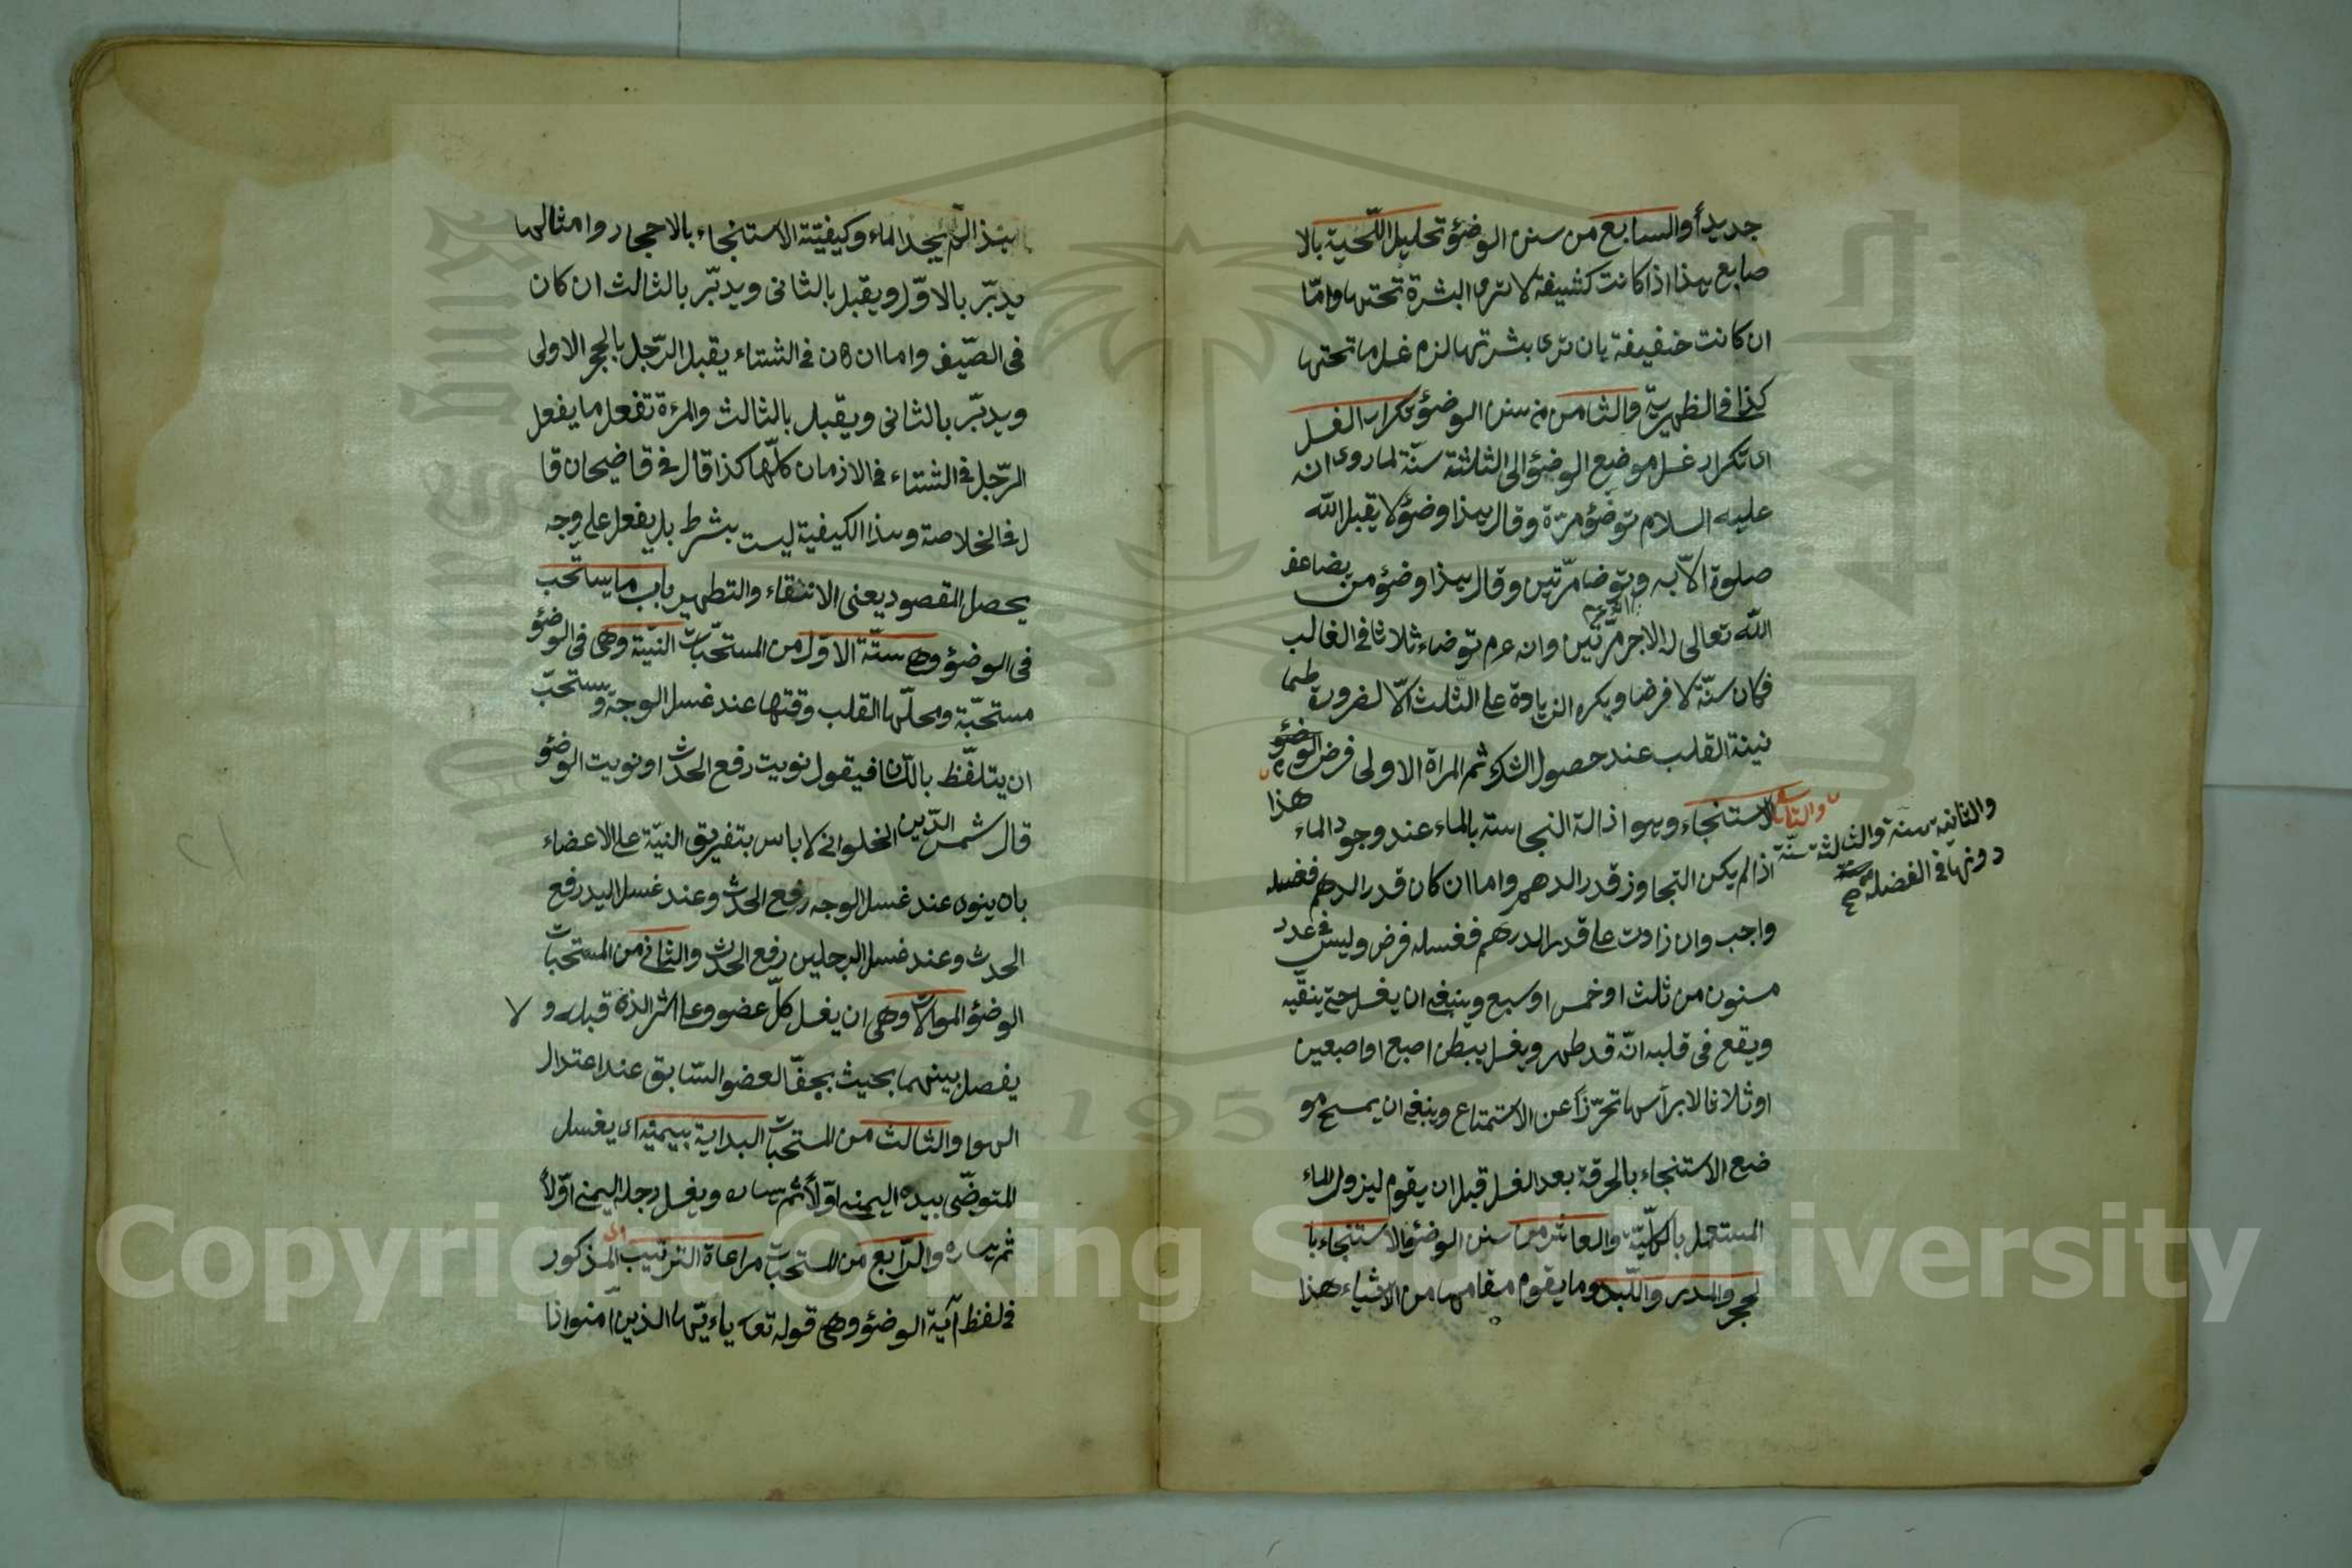 جديدأ والسابع من سنن الوضؤ تحليل اللّحية بالا
صابع هذا اذا كانت كثيفة لا ترى البشرة تحتها وامّا
ان كانت خفيفة بان ترى بشرتها لزم غسل ما تحتها
كذا فى الظهيرية والثامن من سنن الوضؤ تكرار الغسل
اى تكرار غسل موضع الوضؤ الى الثالثة سنّة لما روى انه
عليه السلام توضؤ مرّة وقال هذا وضؤ لا يقبل الله
صلوة الاّ به وتوضا مرّتين وقال هذا وضؤ من يضاعف
الله تعالى له الاجر مرّتين وانه عم توضاء ثلاثا فى الغالب
فكان سنّة لا فرضا ويكره الزيادة على الثلث الاّ لضرورة طما
نينة القلب عند حصول الشك ثم المراة الاولى فرض الوضؤ
والثانية سنة والثالثة سنّة
دونها فى الفضيلة صح
والتاسع الاستنجاء وهو اذالة النجاسة بالماء عند وجود الماء هذا
اذا لم يكن التجاوز قدر الدهم واما ان كان قدر الدهم فغسله
واجب وان زادت على قدر الدرهم فغسله فرض وليس فى عدد
مسنون من ثلث او خمس او سبع وينبغى ان يغسل حتى ينقّيه
ويقع فى قلبه انّه قد طهر ويغسل ببطن اصبع او اصبعين
او ثلاثا لا برأسها تحرّزاً عن الاستمتاع وينبغى ان يمسح مو
ضع الاستنجاء بالحرقة بعد الغسل قبل ان يقوم ليزول الماء
المستعمل بالكلّيّة والعاشر من سنن الوضؤ الاستنجاء با
لحجر والمدر واللّبد وما يقوم مقامها من الاشياء هذا
هذا الم يجد الماء وكيفيّة الاستنجاء بالاحجار وامثالها
يدبّر بالاوّل ويقبل بالثانى ويدبّر بالثالث ان كان
فى الصّيف واما ان كان فى الشتاء يقبل الرّجل بالحجر الاولى
ويدبّر بالثانى ويقبل بالثالث والمرءة تفعل ما يفعل
الرّجل فى الشتاء فى الازمان كلّها كذا قال فى قاضيحان قا
ل فى الخلاصة وهذا الكيفية ليست بشرط بل يفعل على وجه
يحصل المقصود يعنى الانتقاء والتطهير باب ما يستحب
فى الوضؤ وهى ستّة الاوّل من المستحّبات النيّة وهى فى الوضؤ
مستحبّة ومحلّها القلب وقتها عند غسل الوجه ويستحبّ
ان يتلفّظ باللّسان فيقول نويت رفع الحدث او نويت الوضؤ
قال شمس الدّين الخلوانى لا باس بتفريق النيّة على الاعضاء
بان ينوى عند غسل الوجه رفع الحدث وعند غسل اليد رفع
الحدث وعند غسل الرجلين رفع الحدث والثانى من المستحبات
الوضؤ الموالات وهى ان يغسل كلّ عضو وعلى اثر الذى قبله و لا
يفصل بينهما بحيث يجفّ العضو السّابق عند اعتدال
الهوا والثالث من المستحبات البداية بيمينه اى يغسل
المتوضّى بيده اليمنى اوّلاً ثم يساره ويغسل رجله اليمنى اوّلاً
ثم يساره والرّابع من المستحبّ مراعاة الترتيب المذكور
فى لفظ آية الوضؤ وهى قوله تعه ياء يّها الذين آمنوا اذا
Copyright © King Saud University
1957